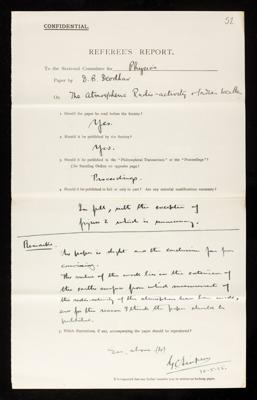 CONFIDENTIAL.
52
REFEREE'S REPORT.
To the Sectional Committee for Physics
Paper by D. B. Deodhar
On The Atmospheric Radio-activity
1. Should the paper be read before the Society?
Yes.
2. Should it be published by the Society?
Yes.
3. Should it be published in the "Philosophical Transactions" or the "Proceedings"?
(See Standing Orders on opposite page)
Proceedings.
4. Should it be published in full or only in part? Are any material modifications necessary?
In full, with the exception of
figure 2 which is unnecessary.
Remarks.
The paper is slight and the conclusion far from
convincing.
The value of the work lies in the extension of
the earth's surface from which measurement of
the radio-activity of the atmosphere has been made,
and for this reason I think the paper should be
published.
5. Which illustrations, if any, accompanying the paper should be reproduced?
See above (4)